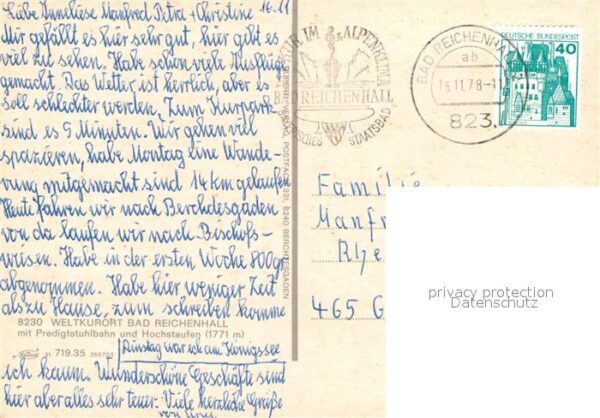 Liebe Anneliese Manfred Petra + Christine 16.11
Mir gefällt es hier sehr gut, hier gibt es
viel zu sehen. Habe schon viele Ausflüge
gemacht. Das Wetter ist herrlich, aber es
soll schlechter werden. Zum Kurpark
sind es 5 Minuten. Wir gehen viel
spazieren, habe Montag eine Wande-
rung mitgemacht sind 14 km gelaufen
Heute fahren wir nach Berchdesgaden
von da laufen wir nach Bischofs-
wiesen. Habe in der ersten Woche 800 gr
abgenommen. Habe hier weniger Zeit
als zu Hause, zum schreiben komme
8230 WELTKURORT BAD REICHENHALL
mit Predigtstuhlbahn und Hochstaufen (1771 m)
719.35
Dinstag war ich am Königssee
ich kaum. Wunderschöne Geschäfte sind
hier aber alles sehr teuer. Viele herzliche Grüße
von
POSTFACH 8240 BERCHTESGADEN
KUR IM ALPENKLIMA
BAD REICHENHALL
STAATSBAD
BAD REICHENHALL
ab
16.11.78
823
DEUTSCHE BUNDESPOST
40
Familie
Manfr
Rhe
465 G
privacy protection
Datenschutz